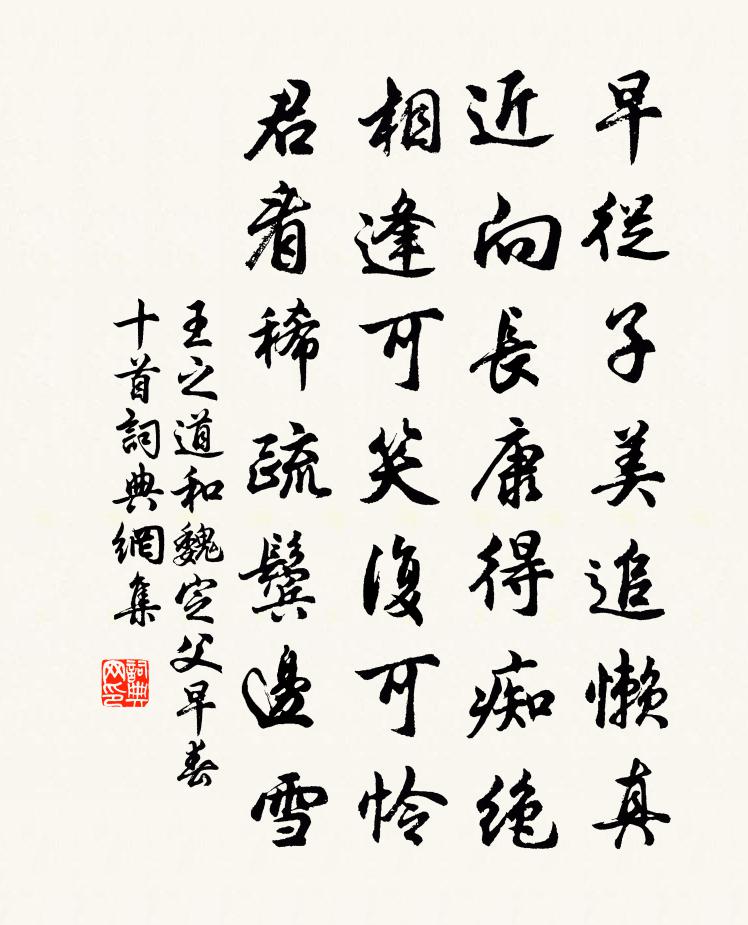 早從子美追懶真
近向長康得痴绝
相逢可笑復可怜
君看稀疏鬓邊雪
王之道和魏定父早春
十首詞典網集
詞典
网印